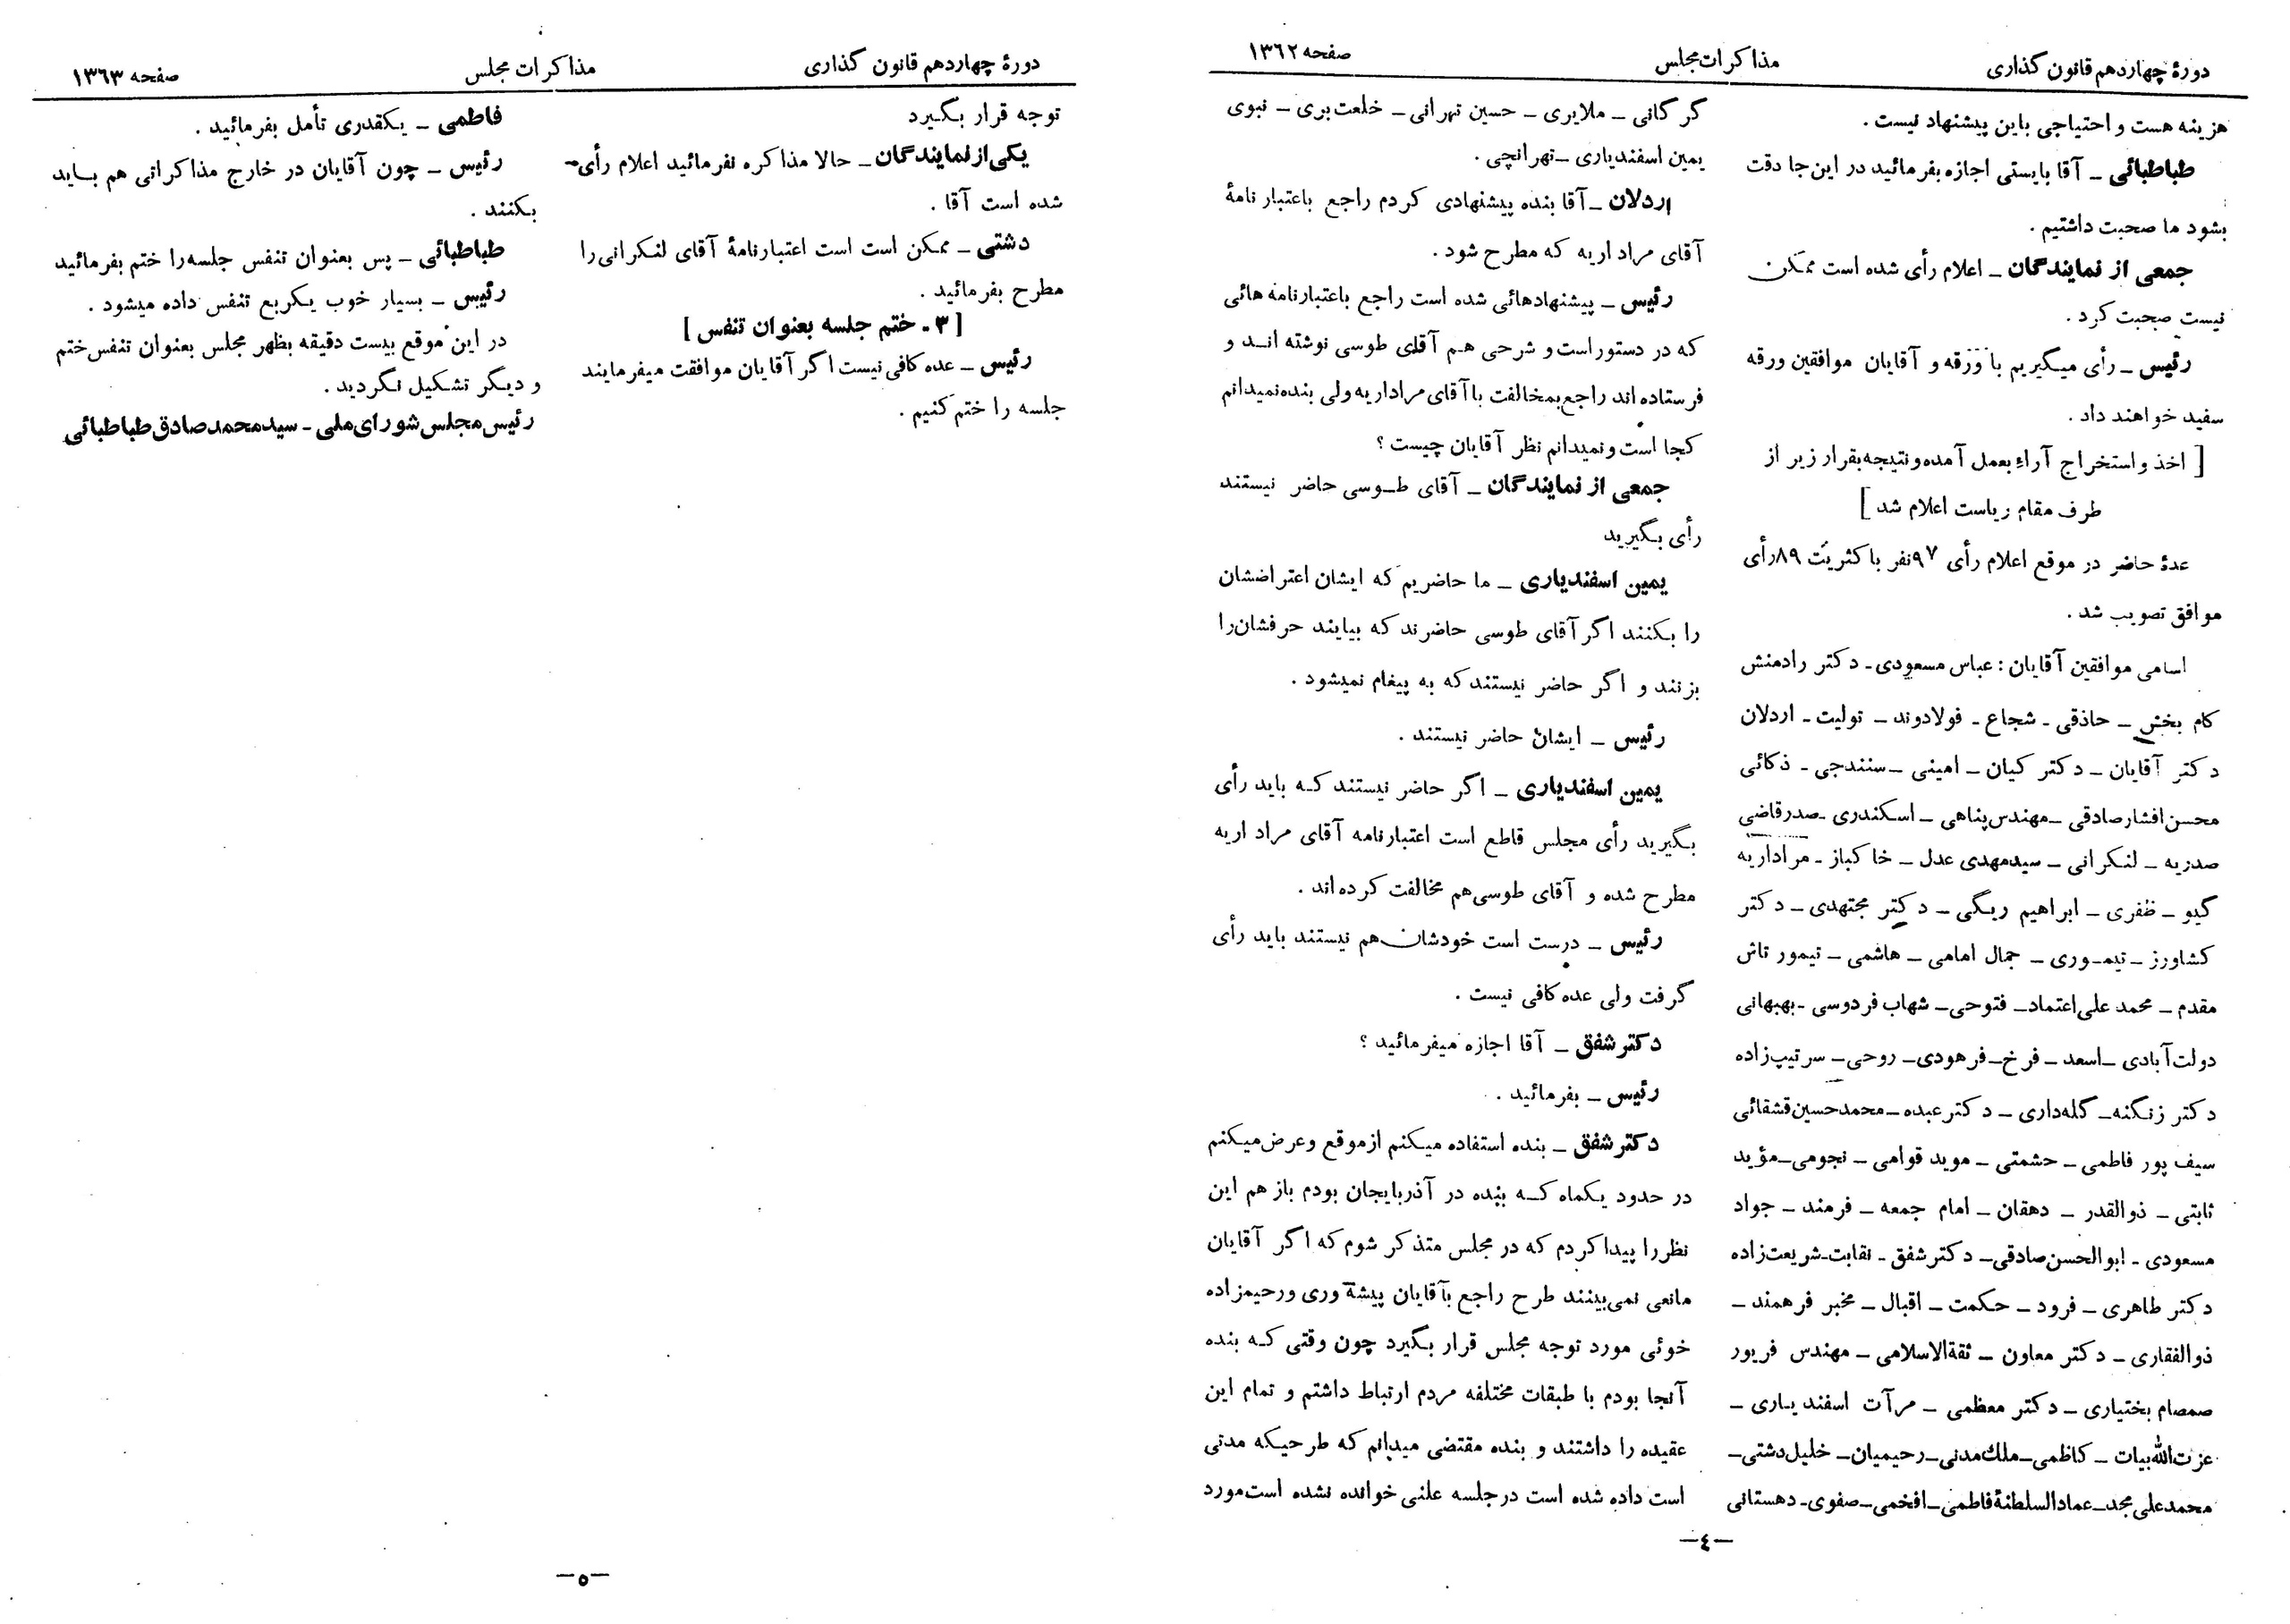 دورهٔ چهاردهم قانون گذاری
مذاکرات مجلس
صفحه ۱۳٦۲
هزینه هست و احتیاجی باین پیشنهاد نیست .
طباطبائی ــ آقا بایستی اجازه بفرمائید در این جا دقت
بشود ما صحبت داشتیم .
جمعی از نمایندگان ــ اعلام رأی شده است ممکن
نیست صحبت کرد .
رئیس ــ رأی میگیریم با ورقه و آقایان موافقین ورقه
سفید خواهند داد .
[ اخذ و استخراج آراء بعمل آمده و نتیجه بقرار زیر از
طرف مقام ریاست اعلام شد ]
عدهٔ حاضر در موقع اعلام رأی ۹۷نفر باکثریت ۸۹رأی
موافق تصویب شد .
اسامی موافقین آقایان : عباس مسعودی ـ دکتر رادمنش
کام بخش ــ حاذقی ـ شجاع ـ فولادوند ــ تولیت ـ اردلان
دکتر آقایان ــ دکتر کیان ــ امینی ــ سنندجی ـ ذکائی
محسن افشار صادقی ــ مهندس پناهی ــ اسکندری ـ صدرقاضی
صدریه ــ لنکرانی ــ سیدمهدی عدل ــ خاکباز ـ مراداریه
گیو ــ ظفری ــ ابراهیم ریگی ــ دکتر مجتهدی ــ دکتر
کشاورز ــ تیموری ــ جمال امامی ــ هاشمی ــ تیمور تاش
مقدم ــ محمد علی اعتماد ــ فتوحی ــ شهاب فردوسی ـ بهبهانی
دولت آبادی ــ اسعد ــ فرخ ــ فرهودی ــ روحی ــ سرتیپ زاده
دکتر زنگنه ــ گله‌داری ــ دکتر عبده ــ محمدحسین قشقائی
سیف پور فاطمی ــ حشمتی ــ موید قوامی ــ نجومی ــ مؤید
ثابتی ــ ذوالقدر ــ دهقان ــ امام جمعه ــ فرمند ــ جواد
مسعودی ـ ابوالحسن صادقی ــ دکتر شفق ـ نقابت ـ شریعت زاده
دکتر طاهری ــ فرود ــ حکمت ــ اقبال ــ مخبر فرهمند ــ
ذوالفقاری ــ دکتر معاون ــ ثقةالاسلامی ــ مهندس فریور
صمصام بختیاری ــ دکتر معظمی ــ مرآت اسفندیاری ــ
عزت‌الله بیات ــ کاظمی ــ ملك مدنی ــ رحیمیان ــ خلیل دشتی ــ
محمدعلی مجد ــ عمادالسلطنهٔ فاطمی ــ افخمی ــ صفوی ـ دهستانی
گرگانی ــ ملایری ــ حسین تهرانی ــ خلعت بری ــ نبوی
یمین اسفندیاری ــ تهرانچی .
اردلان ــ آقا بنده پیشنهادی کردم راجع باعتبار نامهٔ
آقای مراد اریه که مطرح شود .
رئیس ــ پیشنهادهائی شده است راجع باعتبارنامه هائی
که در دستور است و شرحی هم آقای طوسی نوشته اند و
فرستاده‌اند راجع بمخالفت با آقای مراد اریه ولی بنده نمیدانم
کجا است و نمیدانم نظر آقایان چیست ؟
جمعی از نمایندگان ــ آقای طوسی حاضر نیستند
رأی بگیرید
یمین اسفندیاری ــ ما حاضریم که ایشان اعتراضشان
را بکنند اگر آقای طوسی حاضرند که بیایند حرفشان را
بزنند و اگر حاضر نیستند که به پیغام نمیشود .
رئیس ــ ایشان حاضر نیستند .
یمین اسفندیاری ــ اگر حاضر نیستند که باید رأی
بگیرید رأی مجلس قاطع است اعتبارنامه آقای مراد اریه
مطرح شده و آقای طوسی هم مخالفت کرده‌اند .
رئیس ــ درست است خودشان هم نیستند باید رأی
گرفت ولی عده کافی نیست .
دکتر شفق ــ آقا اجازه میفرمائید ؟
رئیس ــ بفرمائید .
دکتر شفق ــ بنده استفاده میکنم از موقع و عرض میکنم
در حدود یکماه که بنده در آذربایجان بودم باز هم این
نظر را پیدا کردم که در مجلس متذکر شوم که اگر آقایان
مانعی نمی‌بینند طرح راجع بآقایان پیشه وری و رحیم‌زاده
خوئی مورد توجه مجلس قرار بگیرد چون وقتی که بنده
آنجا بودم با طبقات مختلفه مردم ارتباط داشتم و تمام این
عقیده را داشتند و بنده مقتضی میدانم که طرحیکه مدتی
است داده شده است در جلسه علنی خوانده نشده است مورد
ــ٤ــ
دورهٔ چهاردهم قانون گذاری
مذاکرات مجلس
صفحه ۱۳٦۳
توجه قرار بگیرد
یکی از نمایندگان ــ حالا مذاکره نفرمائید اعلام رأی
شده است آقا .
دشتی ــ ممکن است است اعتبارنامهٔ آقای لنکرانی را
مطرح بفرمائید .
[ ۳ ـ ختم جلسه بعنوان تنفس ]
رئیس ــ عده کافی نیست اگر آقایان موافقت میفرمایند
جلسه را ختم کنیم .
فاطمی ــ یکقدری تأمل بفرمائید .
رئیس ــ چون آقایان در خارج مذاکراتی هم باید
بکنند .
طباطبائی ــ پس بعنوان تنفس جلسه را ختم بفرمائید
رئیس ــ بسیار خوب یکربع تنفس داده میشود .
در این موقع بیست دقیقه بظهر مجلس بعنوان تنفس ختم
و دیگر تشکیل نگردید .
رئیس مجلس شورای ملی ـ سید محمد صادق طباطبائی
ــ٥ــ